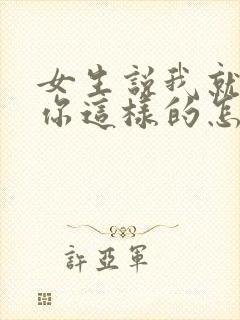 女生說我就
你這樣的怎
許亞軍